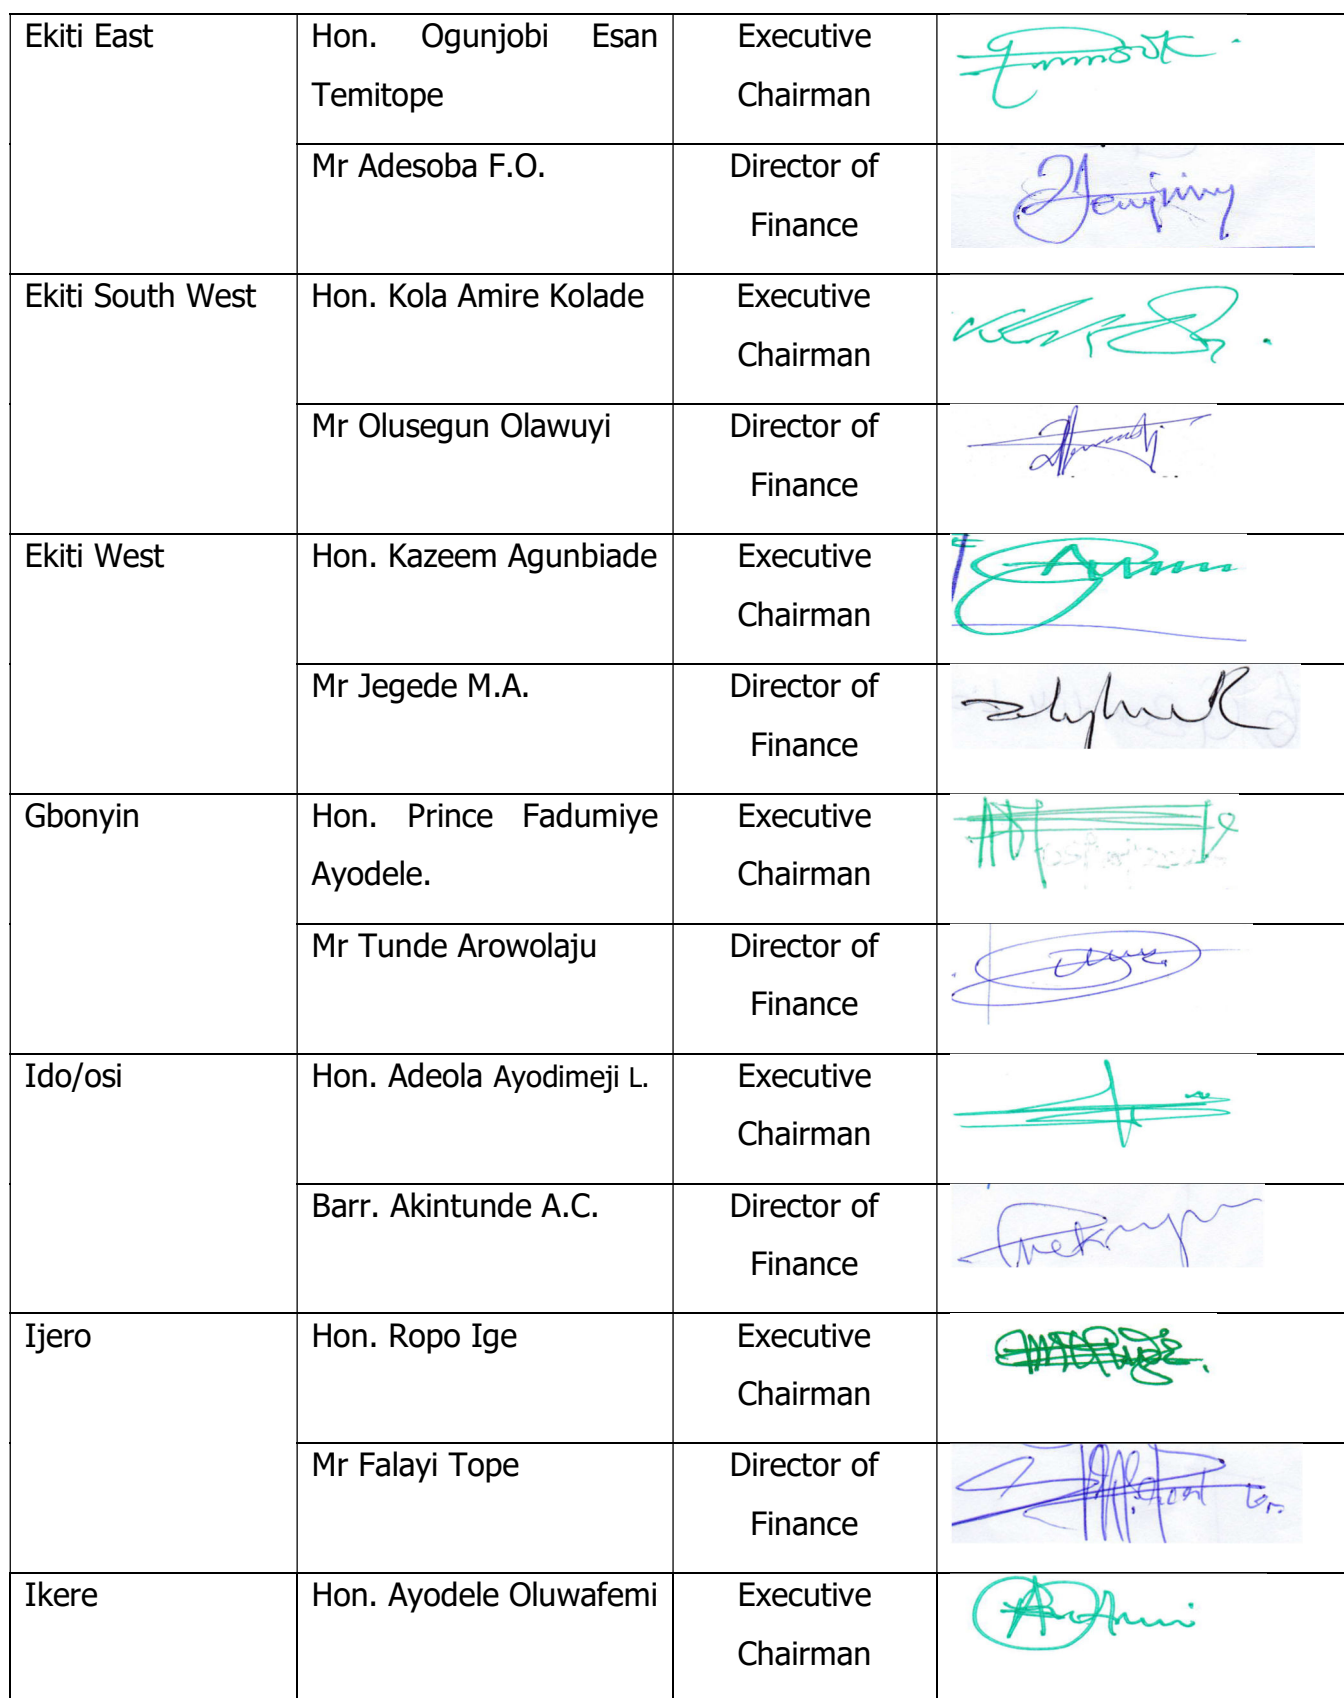 Ekiti East Hon. Ogunjobi Esan Executive
Temitope Chairman
Mr Adesoba F.O. Director of
Finance
Ekiti South West Hon. Kola Amire Kolade Executive
Chairman
Mr Olusegun Olawuyi Director of
Finance
Ekiti West Hon. Kazeem Agunbiade Executive
Chairman
Mr Jegede M.A. Director of
Finance
Gbonyin Hon. Prince Fadumiye Executive
Ayodele. Chairman
Mr Tunde Arowolaju Director of
Finance
Ido/osi Hon. Adeola Ayodimeji L. Executive
Chairman
Barr. Akintunde A.C. Director of
Finance
Ijero Hon. Ropo Ige Executive
Chairman
Mr Falayi Tope Director of
Finance
Ikere Hon. Ayodele Oluwafemi Executive
Chairman